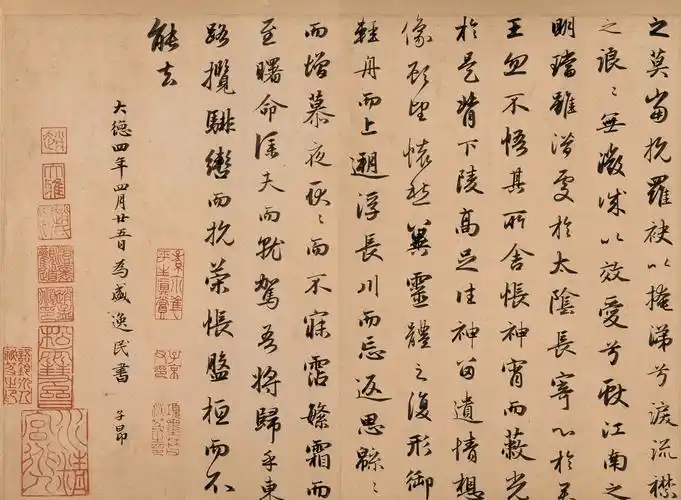 之莫當抗羅袂以掩涕兮淚流襟
之浪〻無微誠以效愛兮獻江南之
明璫雖潛處於太陰長寄心於君
王忽不悟其所舍悵神宵而蔽光
於是背下陵高足往神留遺情想
像顧望懷愁冀靈體之復形御
輕舟而上遡浮長川而忘返思緜〻
而增慕夜耿〻而不寐霑繁霜而
至曙命僕夫而就駕吾將歸乎東
路攬騑轡而抗策悵盤桓而不
能去
大德四年四月廿五日為盛逸民書 子昂
趙
大雅